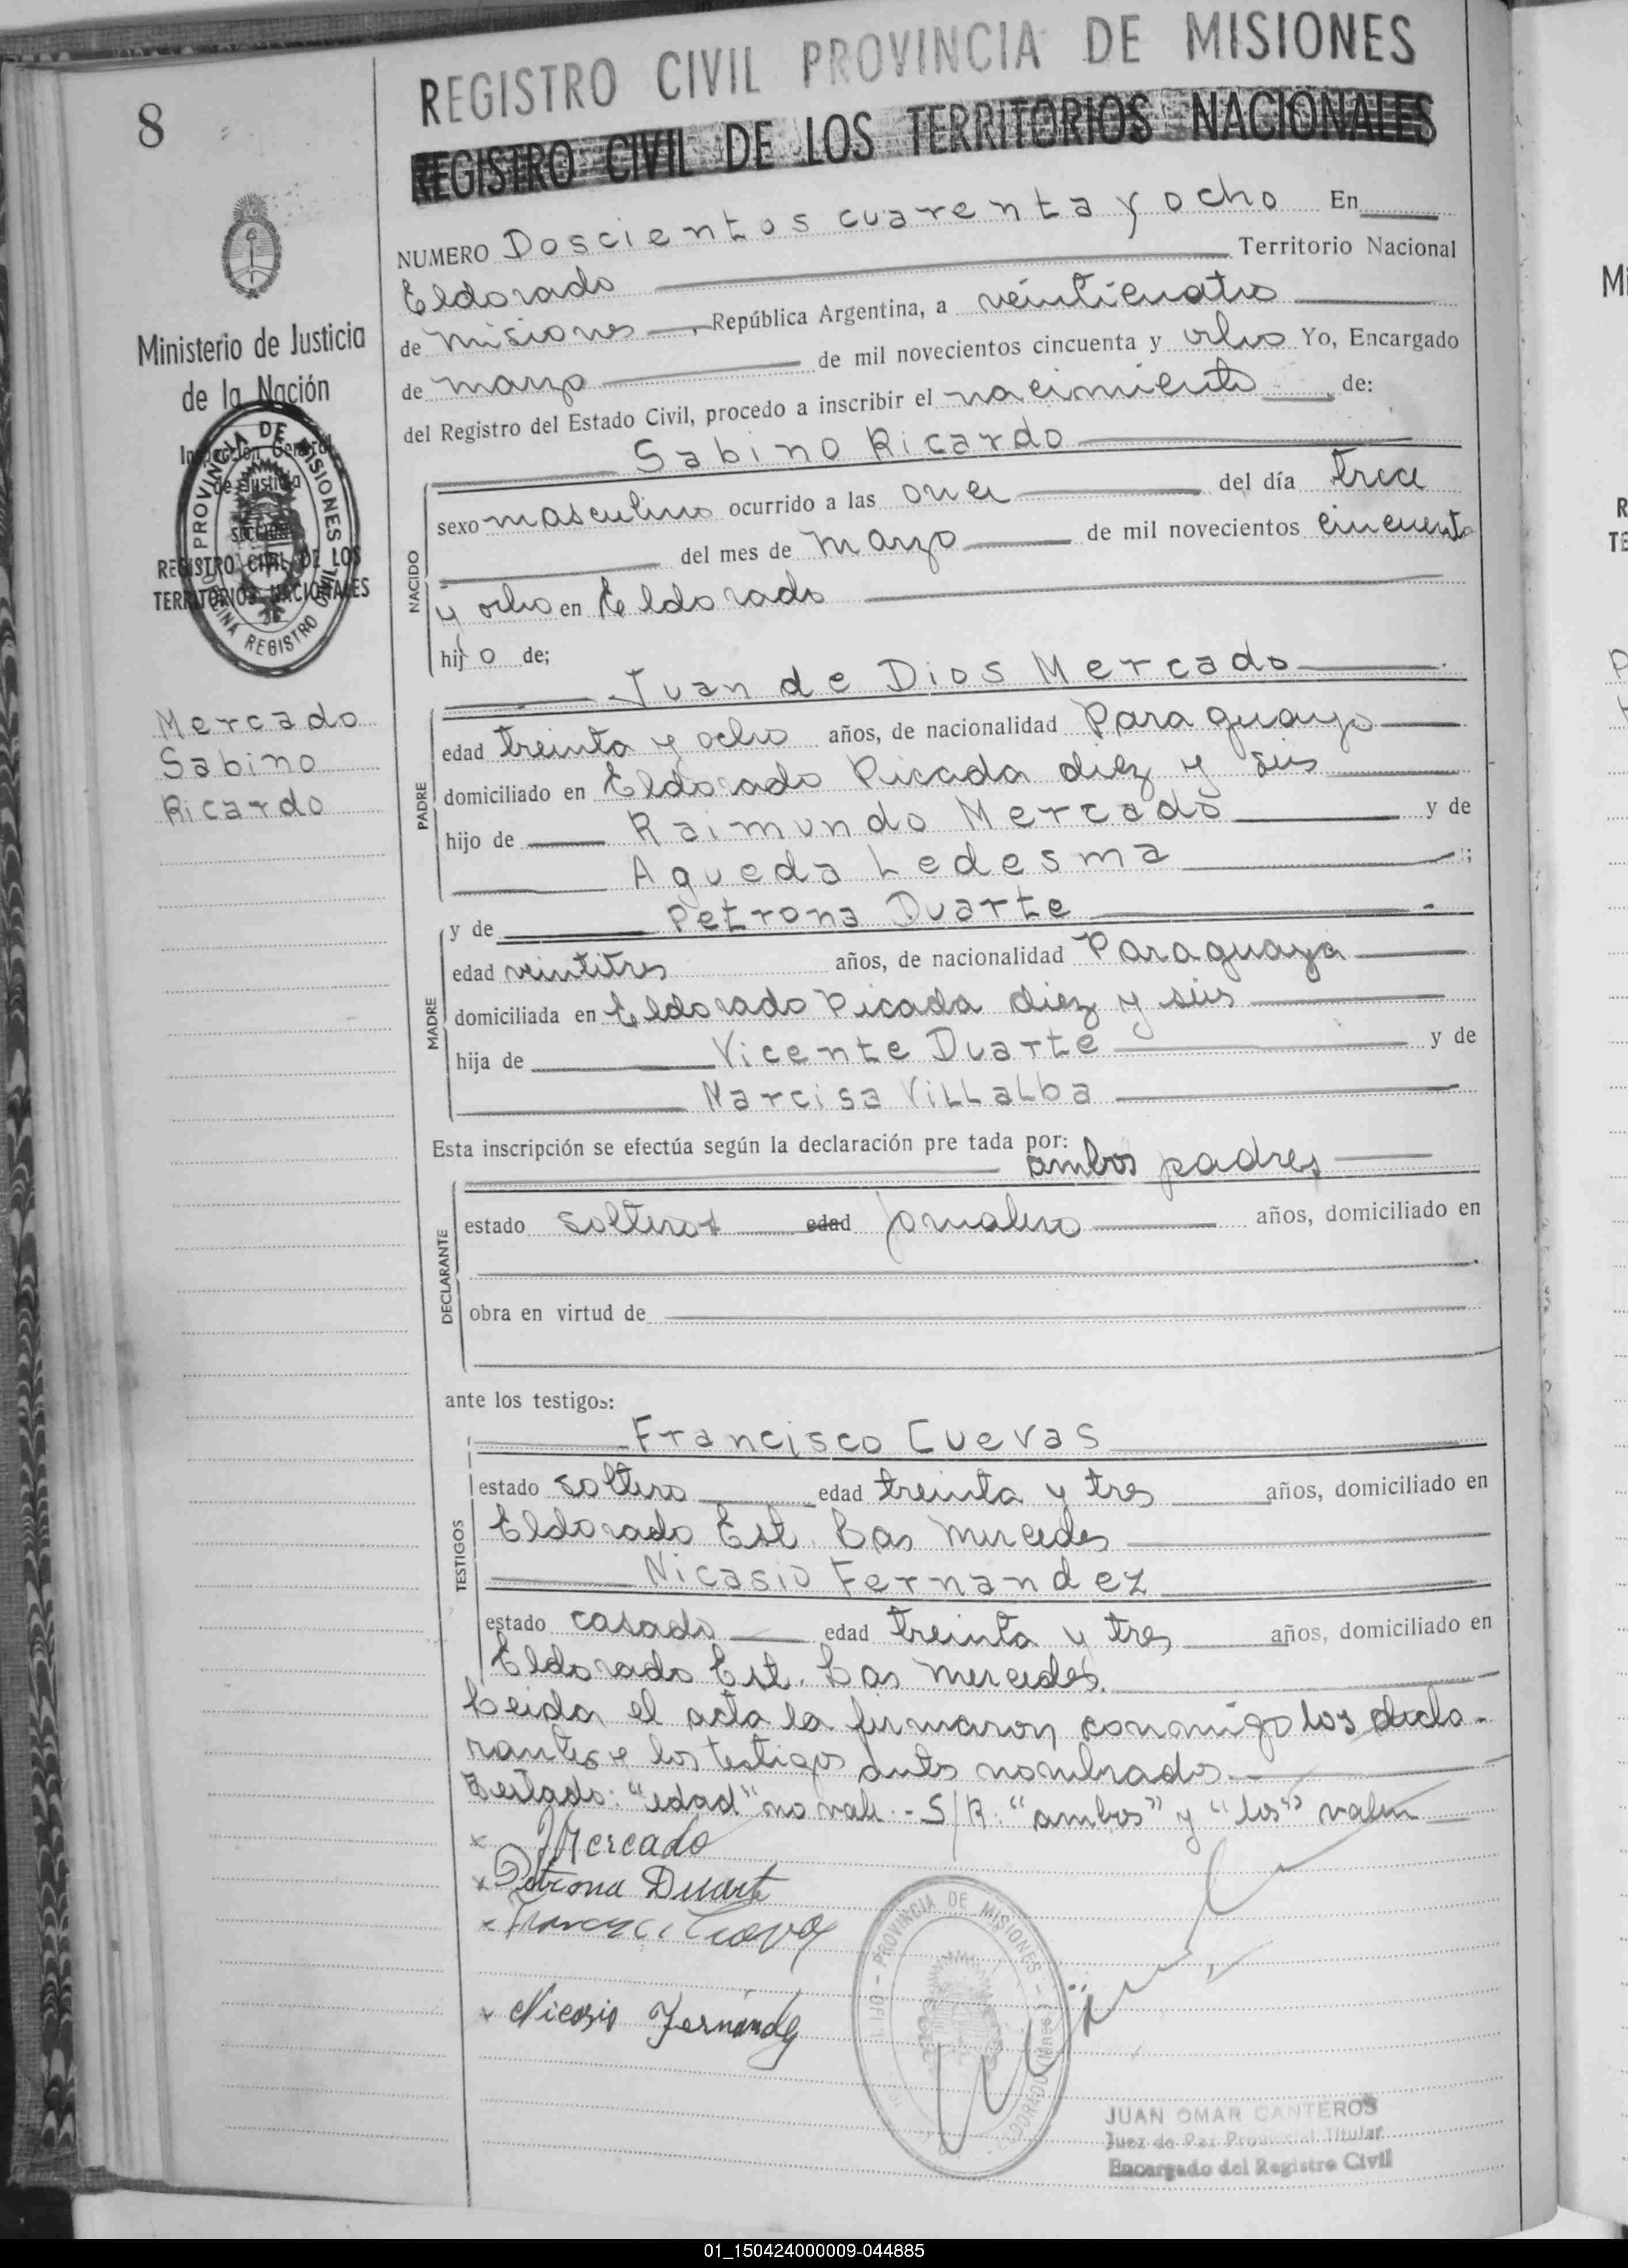 REGISTRO CIVIL PROVINCIA DE MISIONES
REGISTRO CIVIL DE LOS TERRITORIOS NACIONALES
8
Ministerio de Justicia
de la Nación
Inspección General
de Justicia
SECCION
REGISTRO CIVIL DE LOS
TERRITORIOS NACIONALES
PROVINCIA DE MISIONES
OFICINA REGISTRO CIVIL
Mercado
Sabino
Ricardo
NUMERO Doscientos cuarenta y ocho En
Eldorado Territorio Nacional
de misiones, República Argentina, a veinticuatro
de marzo de mil novecientos cincuenta y ocho Yo, Encargado
del Registro del Estado Civil, procedo a inscribir el nacimiento de:
Sabino Ricardo
NACIDO
sexo masculino ocurrido a las once del día trece
del mes de marzo de mil novecientos cincuenta
y ocho en Eldorado
hijo de;
Juan de Dios Mercado
PADRE
edad treinta y ocho años, de nacionalidad Paraguayo
domiciliado en Eldorado Picada diez y seis
hijo de Raimundo Mercado y de
Agueda Ledesma;
y de Petrona Duarte
MADRE
edad veintitres años, de nacionalidad Paraguaya
domiciliada en Eldorado Picada diez y seis
hija de Vicente Duarte y de
Narcisa Villalba
Esta inscripción se efectúa según la declaración pre tada por:
ambos padres
DECLARANTE
estado solteros edad jornalero años, domiciliado en
obra en virtud de
ante los testigos:
Francisco Cuevas
TESTIGOS
estado soltero edad treinta y tres años, domiciliado en
Eldorado Est. Las Mercedes
Nicasio Fernandez
estado casado edad treinta y tres años, domiciliado en
Eldorado Est. Las Mercedes.
Leida el acta la firmaron, conmigo los decla-
rantes y los testigos antes nombrados.
Testado: "edad" no vale.- S/R: "ambos" y "los" valen
x Mercado
x Petrona Duarte
x
x Nicasio Fernández
PROVINCIA DE MISIONES
JUAN OMAR CANTEROS
Juez de Paz Provincial Titular
Encargado del Registro Civil
01_150424000009-044885